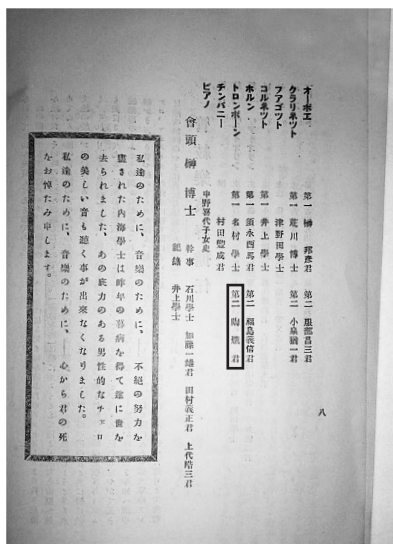 オーボエ 第一 榊 邦彦君 第二 服部昌三君
クラリネツト 第一 荒川博士 第二 小泉誠一君
フアゴツト 津野田學士
コルネツト 第一 井上學士
ホルン 第一 須永酉馬君 第二 福島義信君
トロンボーン 第一 名村學士 第二 陶熾君
チンパニー 村田豐成君
ピアノ 中野喜代子女史
會頭 榊博士
幹事 石川學士 加藤一雄君 田村義正君 上代晧三君
記錄 井上學士
私達のために、音樂のために、不絕の努力を
盡された內海學士は昨年の暮病を得て遂に世を
去られました、あの底力のある男性的なチエロ
の美しい音も聽く事が出來なくなりました。
私達のために、音樂のために、心から君の死
をお悼たみ申します。
八